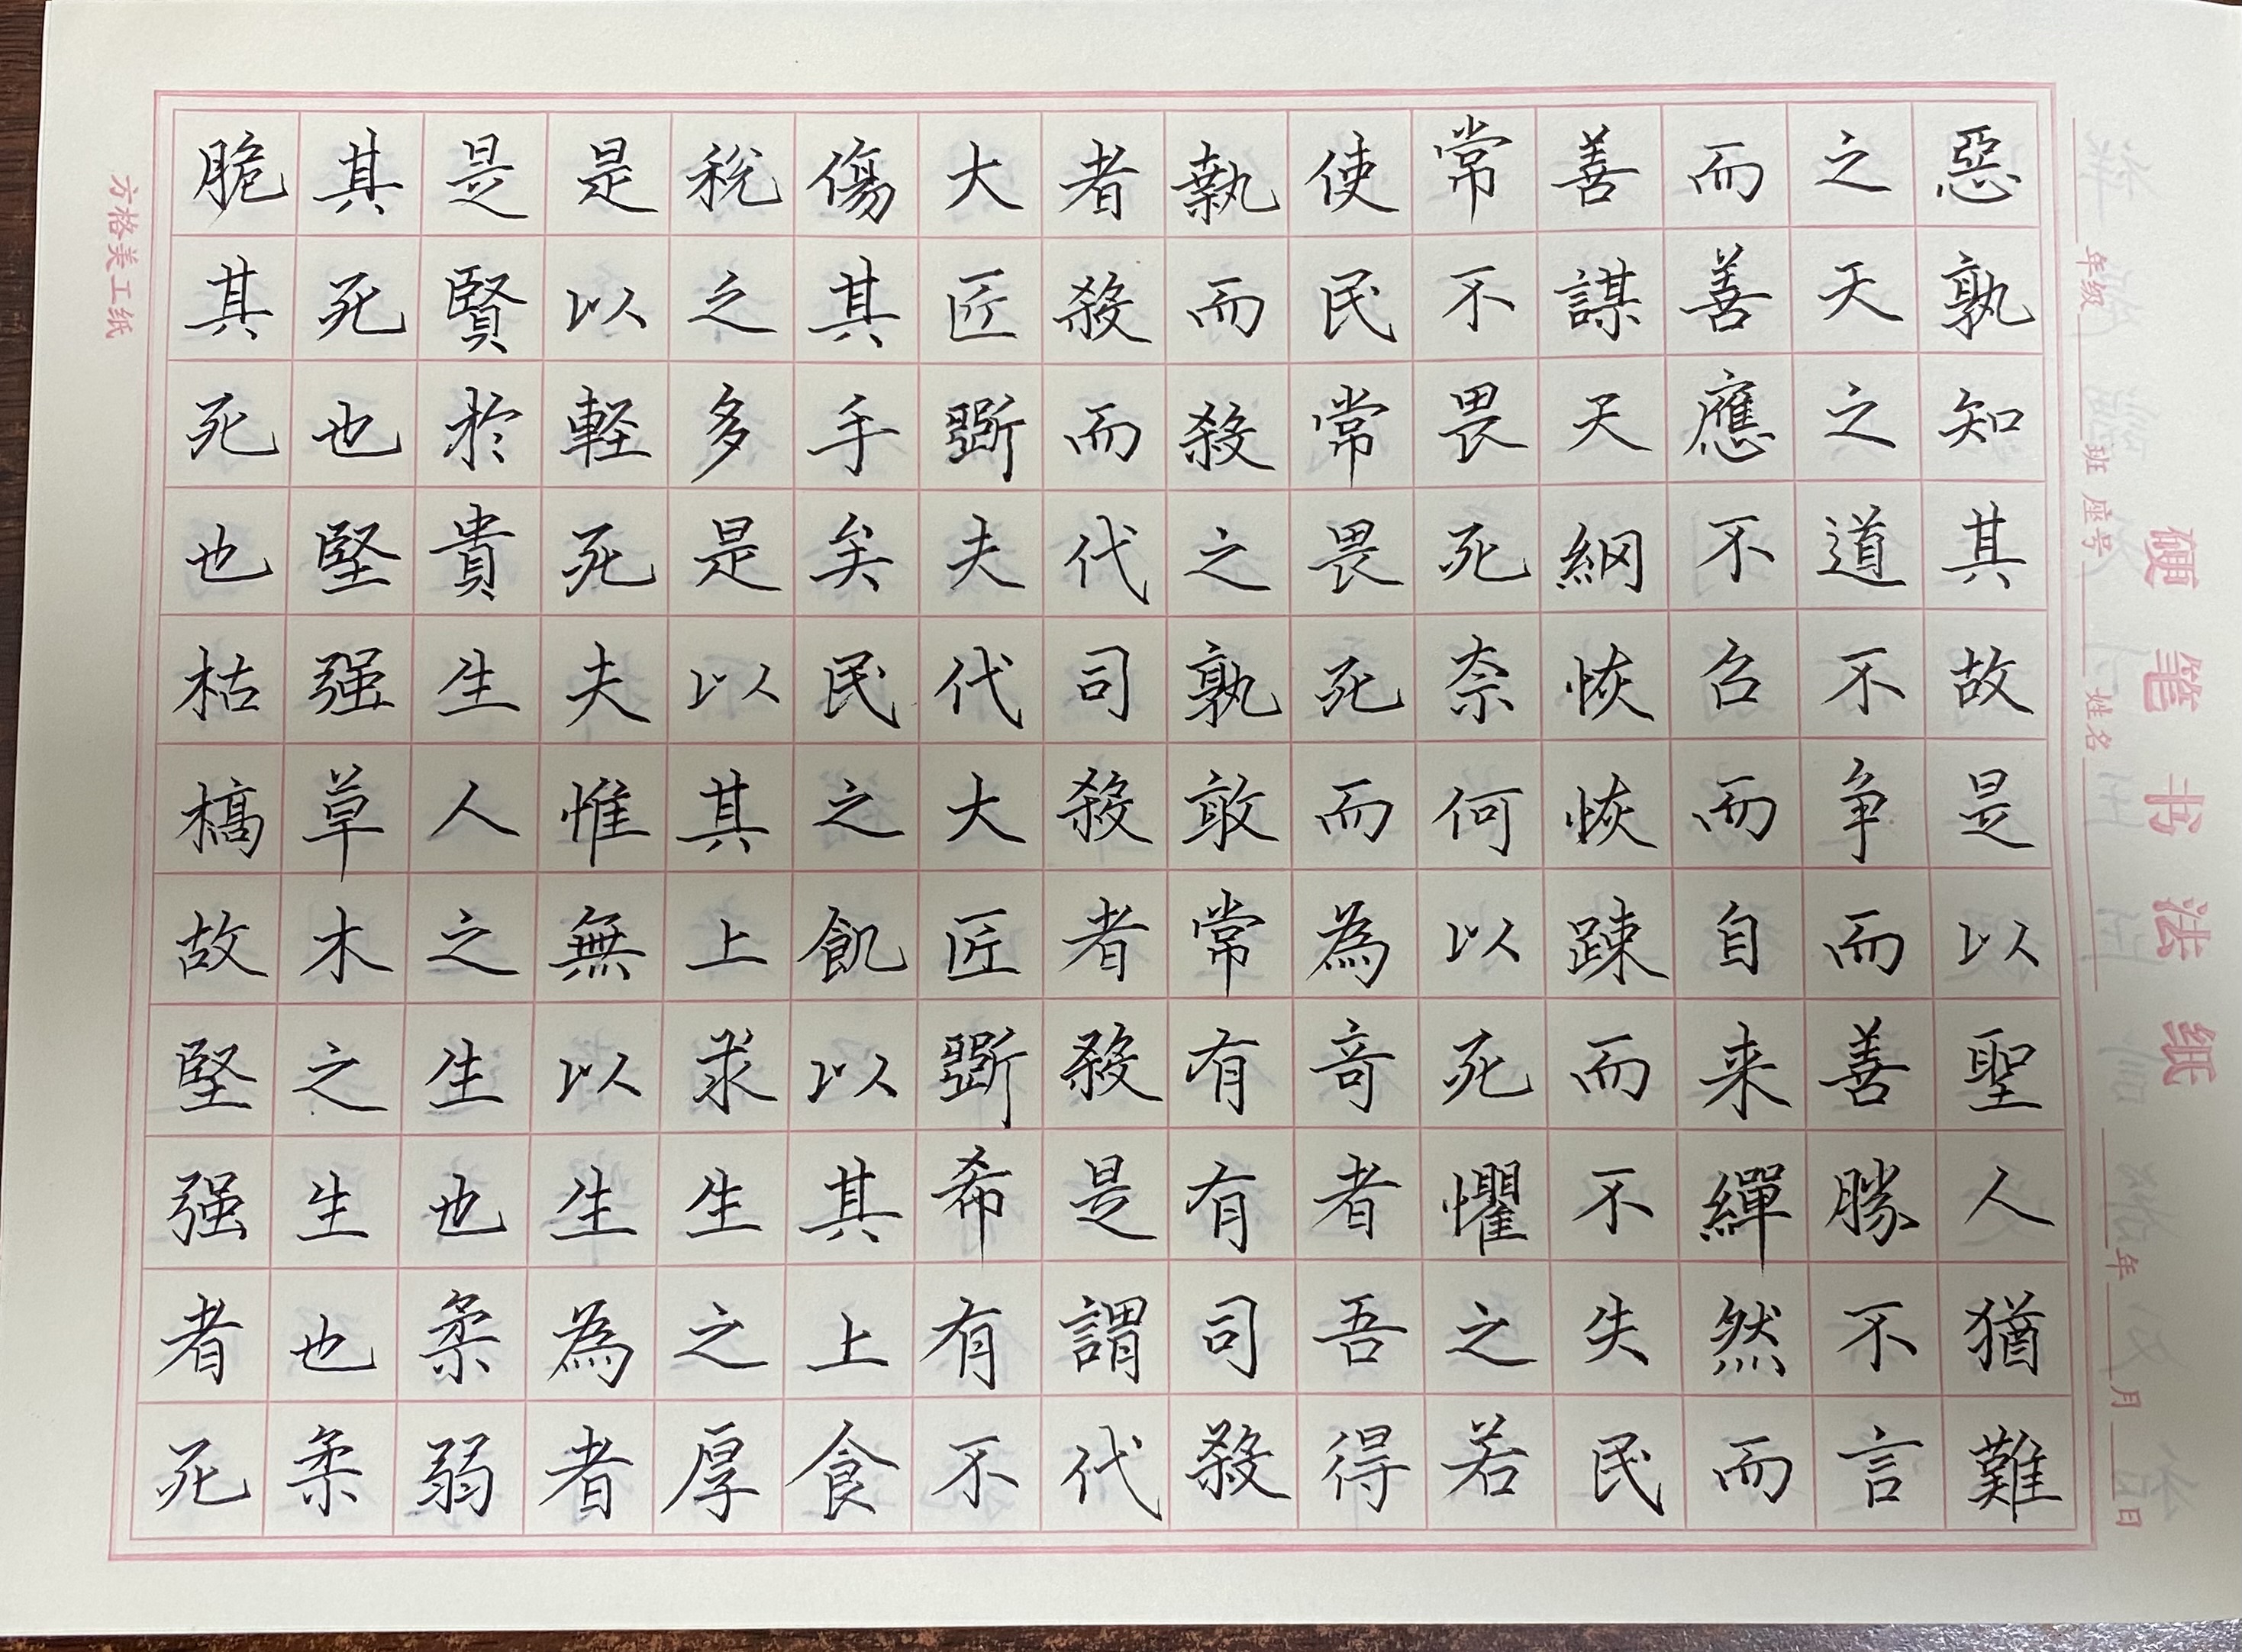 硬笔书法纸
年级 班 座号 姓名 年 月 日
惡孰知其故是以聖人猶難
之天之道不争而善勝不言
而善應不召而自来繟然而
善謀天網恢恢踈而不失民
常不畏死奈何以死懼之若
使民常畏死而為竒者吾得
執而殺之孰敢常有有司殺
者殺而代司殺者殺是謂代
大匠斲夫代大匠斲希有不
傷其手矣民之飢以其上食
税之多是以其上求生之厚
是以軽死夫惟無以生為者
是賢於貴生人之生也柔弱
其死也堅强草木之生也柔
脆其死也枯槁故堅强者死
方格美工纸